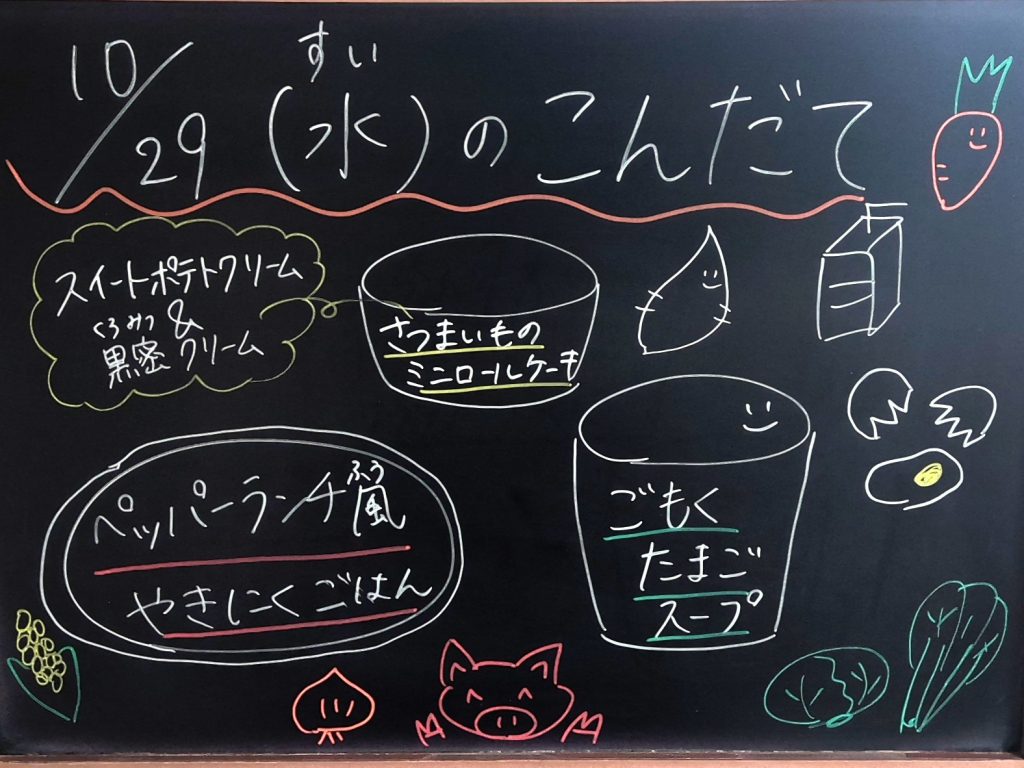 10/29(水)のこんだて
すい
スイートポテトクリーム
&
くろみつ
黒蜜クリーム
さつまいもの
ミニロールケーキ
ペッパーランチ風
ふう
やきにくごはん
ごもく
たまご
スープ